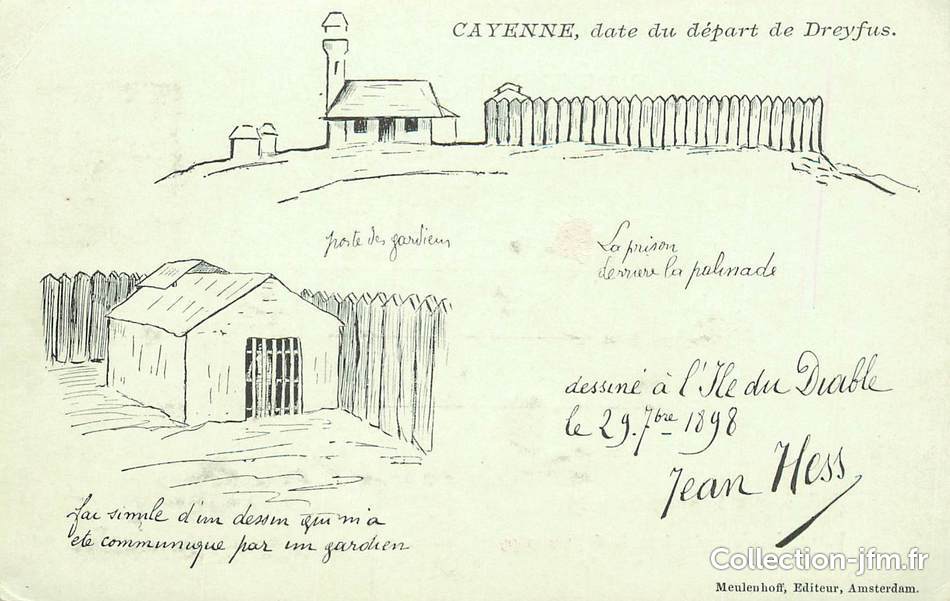 CAYENNE, date du départ de Dreyfus.
poste des gardiens
La prison
derriere la palissade
dessiné à l'Ile du Diable
le 29. 7bre 1898
Jean Hess
fac simile d'un dessin qui m'a
ete communique par un gardien
Collection-jfm.fr
Meulenhoff, Editeur, Amsterdam.